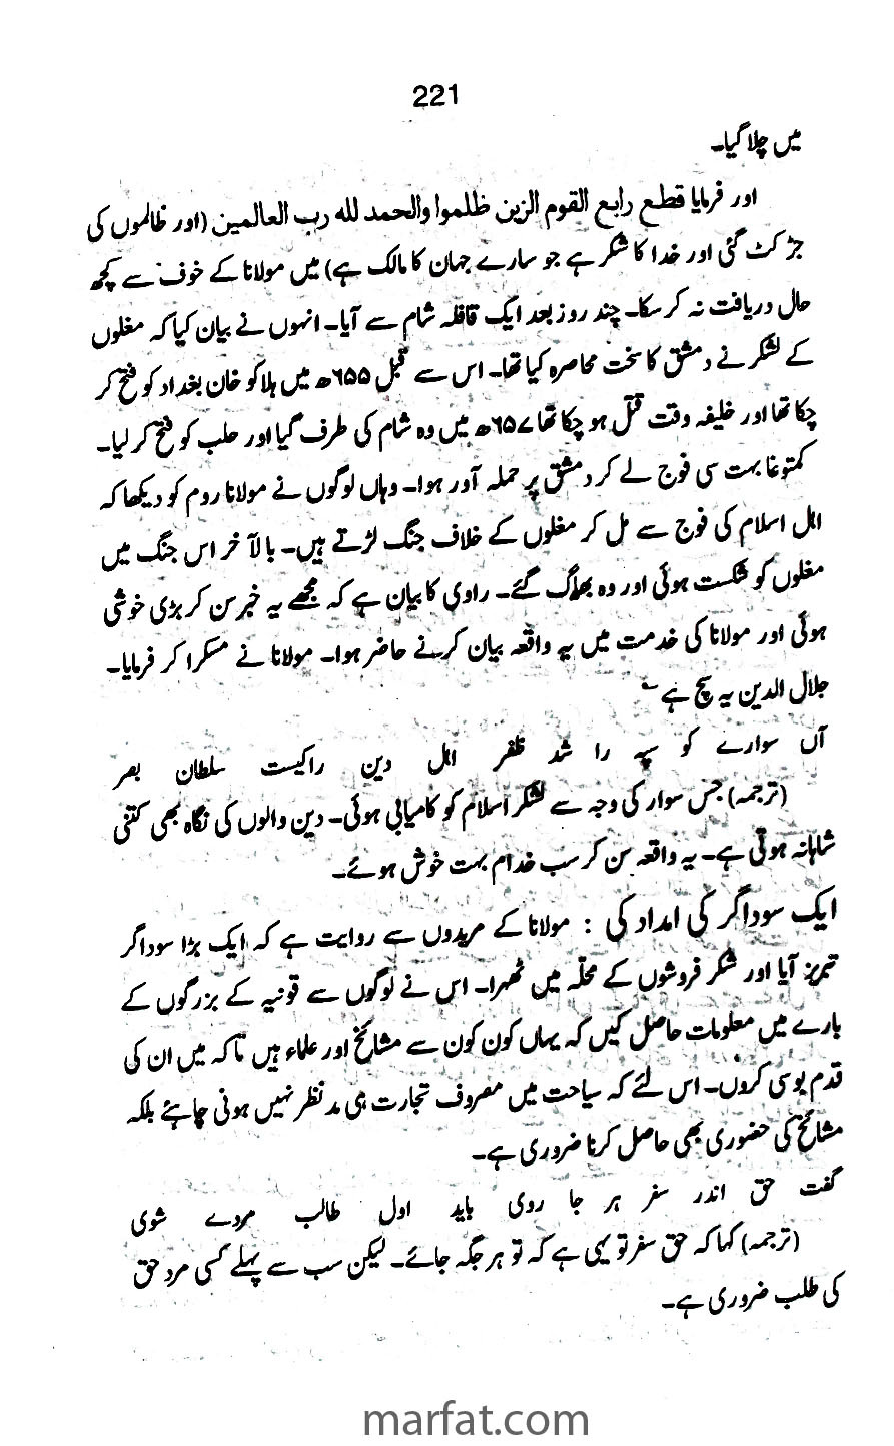 221
میں چلا گیا۔
اور فرمایا قطع رابع القوم الزین ظلموا والحمد لله رب العالمین (اور ظالموں کی
جڑ کٹ گئی اور خدا کا شکر ہے جو سارے جہان کا مالک ہے) میں مولانا کے خوف سے کچھ
حال دریافت نہ کر سکا۔ چند روز بعد ایک قافلہ شام سے آیا۔ انہوں نے بیان کیا کہ مغلوں
کے لشکر نے دمشق کا سخت محاصرہ کیا تھا۔ اس سے قبل ۶۵۵ھ میں ہلاکو خان بغداد کو فتح کر
چکا تھا اور خلیفہ وقت قتل ہو چکا تھا ۶۵۷ھ میں وہ شام کی طرف گیا اور حلب کو فتح کر لیا۔
کمتوغا بہت سی فوج لے کر دمشق پر حملہ آور ہوا۔ وہاں لوگوں نے مولانا روم کو دیکھا کہ
اہل اسلام کی فوج سے مل کر مغلوں کے خلاف جنگ لڑتے ہیں۔ بالآخر اس جنگ میں
مغلوں کو شکست ہوئی اور وہ بھاگ گئے۔ راوی کا بیان ہے کہ مجھے یہ خبر سن کر بڑی خوشی
ہوئی اور مولانا کی خدمت میں یہ واقعہ بیان کرنے حاضر ہوا۔ مولانا نے مسکرا کر فرمایا۔
جلال الدین یہ سچ ہے ؎
آں سوارے کو سپہ را شد ظفر اہل دین راکیست سلطان بصر
(ترجمہ) جس سوار کی وجہ سے لشکر اسلام کو کامیابی ہوئی۔ دین والوں کی نگاہ بھی کتنی
شاہانہ ہوتی ہے۔ یہ واقعہ سن کر سب خدام بہت خوش ہوئے۔
ایک سوداگر کی امداد کی : مولانا کے مریدوں سے روایت ہے کہ ایک بڑا سوداگر
تبریز آیا اور شکر فروشوں کے محلہ میں ٹھہرا۔ اس نے لوگوں سے قونیہ کے بزرگوں کے
بارے میں معلومات حاصل کیں کہ یہاں کون کون سے مشائخ اور علماء ہیں تاکہ میں ان کی
قدم بوسی کروں۔ اس لئے کہ سیاحت میں معروف تجارت ہی مد نظر نہیں ہونی چاہئے بلکہ
مشائخ کی حضوری بھی حاصل کرنا ضروری ہے۔
گفت حق اندر سفر ہر جا روی باید اول طالب مردے شوی
(ترجمہ) کہا کہ حق سفر تو یہی ہے کہ تو ہر جگہ جائے۔ لیکن سب سے پہلے کسی مرد حق
کی طلب ضروری ہے۔
marfat.com